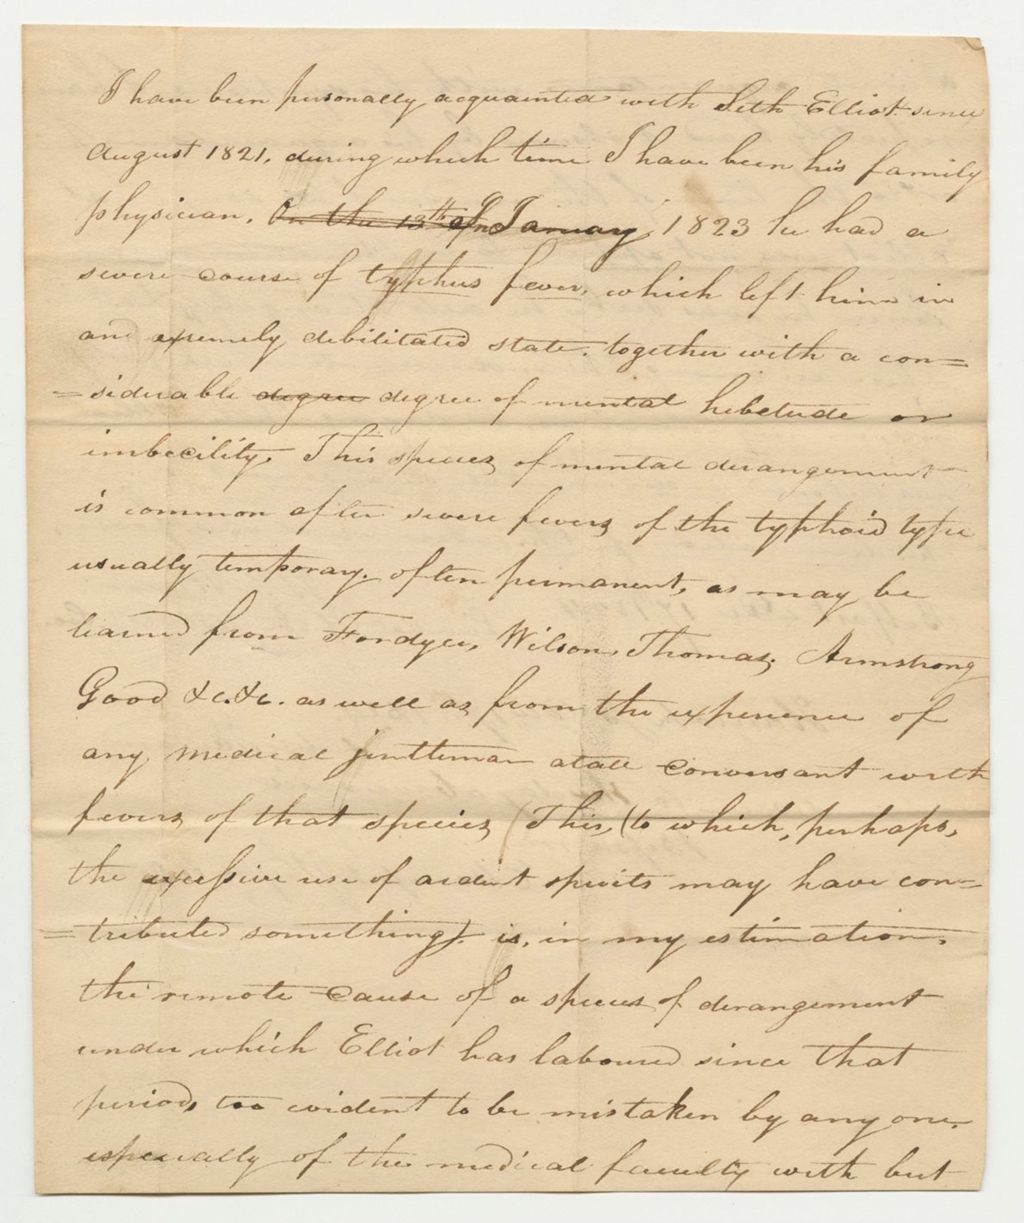 I have been personally acquainted with Seth Elliot since
August 1821, during which time I have been his family
physician. On the 13th of In January 1823 he had a
severe course of typhus fever, which left him in
and extremely debilitated state, together with a con=
=siderable degree degree of mental hebetude or
imbecility. This species of mental derangement
is common after severe fevers of the typhoid type
usually temporary, often permanent, as may be
learned from Fordyce, Wilson, Thomas, Armstrong
Good &c. &c. as well as from the experience of
any medical jentleman atall conversant with
fevers of that species (This, (to which, perhaps,
the excessive use of ardent spirits may have con=
=tributed something) is, in my estimation,
the remote cause of a species of derangement
under which Elliot has laboured since that
period, too evident to be mistaken by any one,
especially of the medical faculty with but